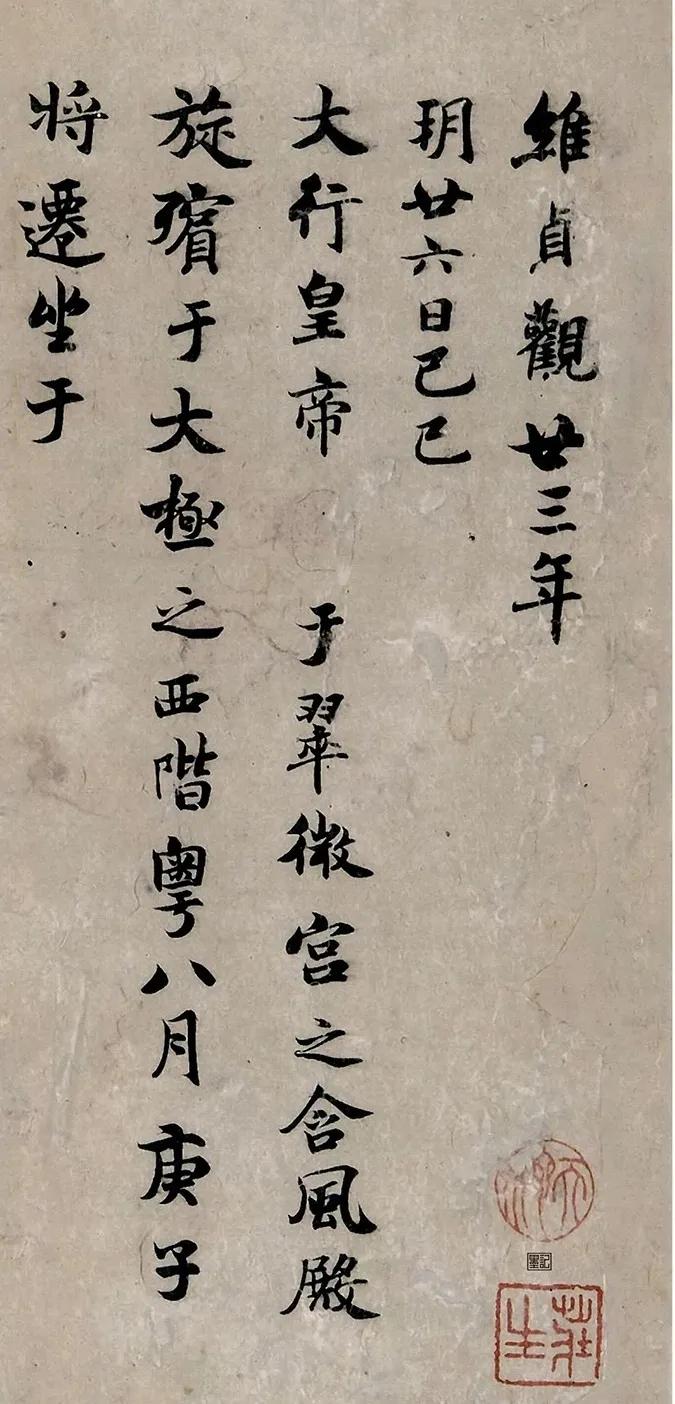 維貞觀廿三年
玥廿六日己巳
大行皇帝 于翠微宮之含風殿
旋殯于大極之西階粤八月庚子
将遷坐于
墨記
莊生